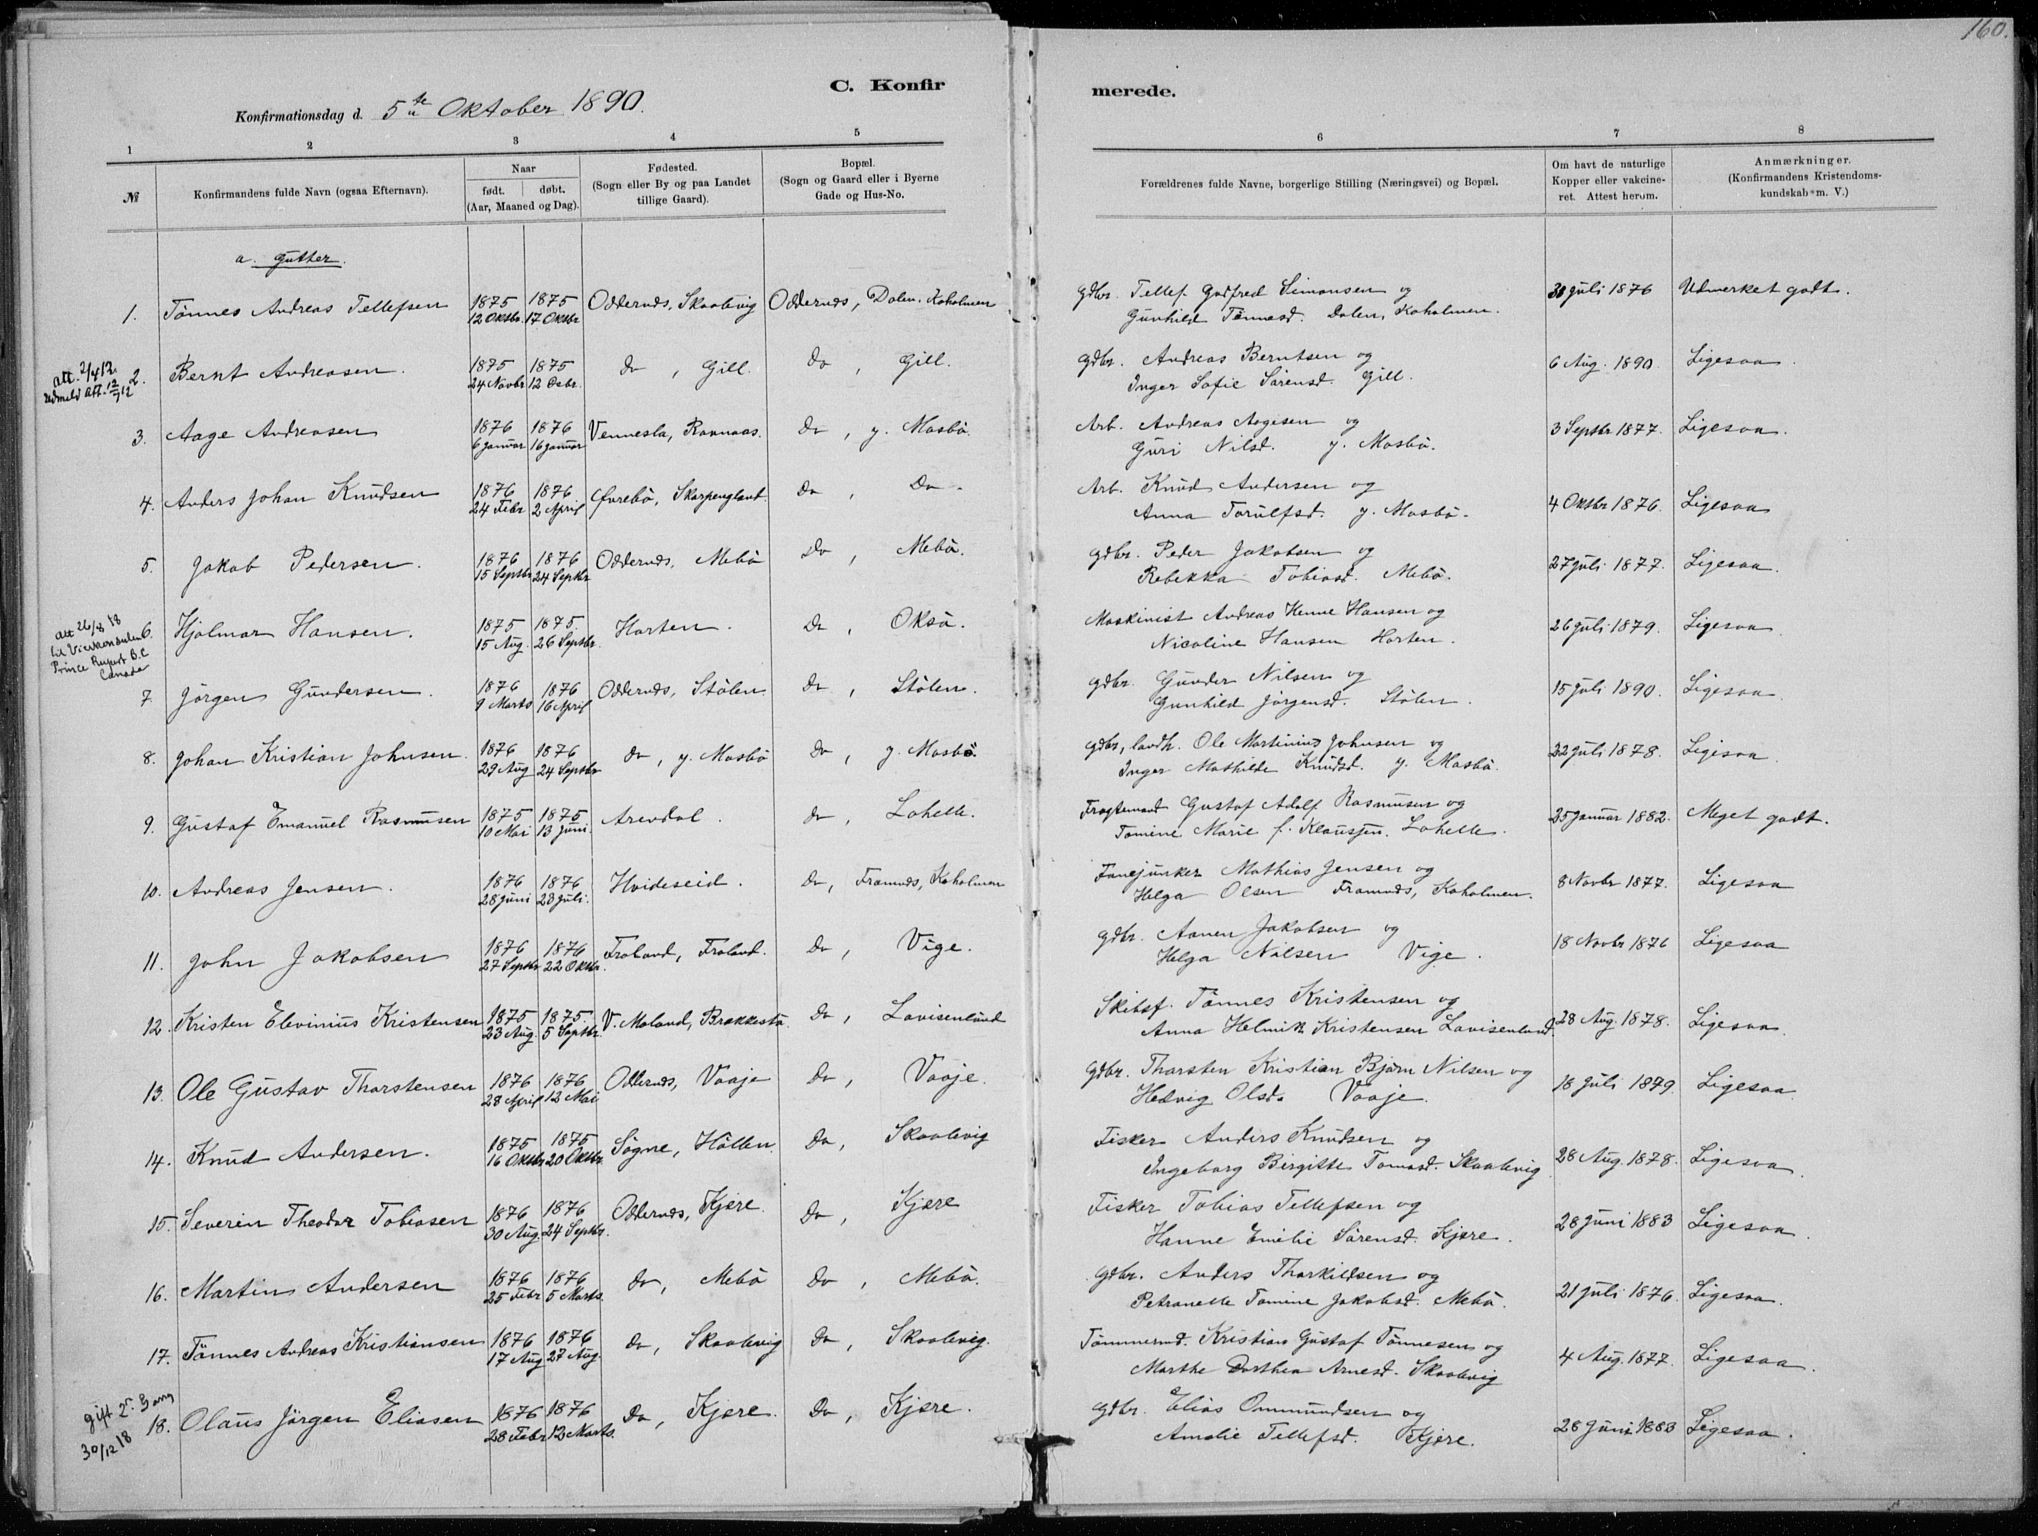 160.
C. Konfir
merede.
Konfirmationsdag d. 5te Oktober 1890.
1 2 3 4 5 6 7 8
№ Konfirmandens fulde Navn (ogsaa Efternavn).
Naar
født. døbt.
(Aar, Maaned og Dag).
Fødested.
(Sogn eller By og paa Landet
tillige Gaard).
Bopæl.
(Sogn og Gaard eller i Byerne
Gade og Hus-No.
Forældrenes fulde Navne, borgerlige Stilling (Næringsvei) og Bopæl.
Om havt de naturlige
Kopper eller vakcine-
ret. Attest herom.
Anmærkninger.
(Konfirmandens Kristendoms-
kundskab m. V.)
a. Gutter.
1. Tönnes Andreas Tellefsen 1875 1875 Oddernæs, Skaalevig Oddernæs, Dalen, Koholmen Gdbr. Tellef Godfred Simonsen og 30 Juli 1876 Udmerket godt.
12 Oktbr. 17 Oktbr Gunhild Tönnesd. Dalen, Koholmen.
att. 2/4 12.
Udmeld att. 12/7 12
2. Bernt Andreasen. 1875 1875 do, Gill. do, Gill. Gdbr. Andreas Berntsen og 6 Aug. 1890. Ligesaa.
24 Novbr 12 Debr. Inger Sofie Sörensd. Gill.
3. Aage Andreasen 1876 1876 Vennesla, Ravnaas. do, y. Mosbö. Arb. Andreas Aagesen og 3 Septbr 1877. Ligesaa.
6 Januar 16 Januar Guri Nilsd. y. Mosbö.
4. Anders Johan Knudsen 1876 1876 Øvrebö, Skarpengland do, Do. Arb. Knud Andersen og 4 Oktbr 1876. Ligesaa
24 Febr 2 April Anna Torulfsd. y. Mosbö.
5. Jakob Pedersen. 1876 1876 Oddernæs, Mebö Do, Mebö. Gdbr. Peder Jakobsen og 27 Juli 1877. Ligesaa.
15 Septbr 24 Septbr Rebekka Tobiasd. Mebö.
att 26/8 18
til Vicekonsulen
Prince Rupert B.C
Canada
6. Hjalmar Hansen. 1875 1875. Horten. do, Oksö. Maskinist Andreas Henne Hansen og 26 Juli 1879. Ligesaa
15 Aug. 26 Septbr. Nicoline Hansen Horten.
7. Jörgen Gundersen. 1876 1876 Oddernæs, Stölen do, Stölen. Gdbr. Gunder Nilsen og 15 Juli 1890. Ligesaa.
9 Marts 16 April Gunhild Jörgensd. Stölen.
8. Johan Kristian Johnsen. 1876 1876 do, y. Mosbö do, y. Mosbö. Gdbr, landh. Ole Martinius Johnsen og 22 Juli 1878. Ligesaa
29 Aug 24 Septbr Inger Mathilde Knudsd. y. Mosbö.
9. Gustaf Emanuel Rasmusen 1875 1875 Arendal. do, Lohelle. Fragtemand Gustaf Adolf Rasmusen og 25 Januar 1882. Meget godt.
10 Mai 13 Juni. Tomine Marie f. Klausen. Lohelle.
10. Andreas Jensen. 1876 1876 Hvideseid. do, Framnæs, Koholmen Fanejunker Mathias Jensen og 8 Novbr 1877. Ligesaa
28 Juni 23 Juli. Helga Olsen Framnæs, Koholmen.
11. John Jakobsen 1876 1876 Froland, Froland. do, Vige. Gdbr. Aanen Jakobsen og 18 Novbr 1876 Ligesaa
27 Septbr 22 Oktbr. Helga Nilsen Vige.
12. Kristen Elevinius Kristensen 1875 1875. V. Moland, Brækkestö do, Lovisenlund Skibsf. Tönnes Kristensen og 28 Aug. 1878. Ligesaa.
23 Aug. 5 Septbr. Anna Helmik Kristensen Lovisenlund.
13. Ole Gustav Thorstensen 1876 1876 Oddernæs, Vaaje do, Vaaje. Gdbr. Thorsten Kristian Bjørn Nilsen og 18 Juli 1879. Ligesaa
28 April 12 Mai Hedvig Olsd. Vaaje.
14. Knud Andersen. 1875 1875 Sögne, Höllen. do, Skaalevig Fisker Anders Knudsen og 28 Aug. 1878. Ligesaa.
16 Oktbr 20 Oktbr. Ingeborg Birgitte Tomasd. Skaalevig
15. Severin Theodor Tobiasen 1876 1876 Oddernæs, Kjære. do, Kjære Fisker Tobias Tellefsen og 28 Juni 1883 Ligesaa.
30 Aug. 24 Septbr. Hanne Emelie Sörensd. Kjære.
16. Martin Andersen 1876 1876 do, Mebö do, Mebö. Gdbr. Anders Thorkildsen og 21 Juli 1876. Ligesaa.
25 Febr 5 Marts. Petronelle Tomine Jakobsd. Mebö.
17. Tönnes Andreas Kristiansen 1876 1876 do, Skaalevig do, Skaalevig. Tömmermd. Kristian Gustaf Tönnesen og 4 Aug. 1877. Ligesaa.
17 Aug 27 Aug. Marthe Dorthea Arnesd. Skaalevig
gift 2. Gang
30/12 18
18. Olaus Jörgen Eliasen 1876 1876 do, Kjære. do, Kjære. Gdbr. Elias Ommundsen og 28 Juni 1883 Ligesaa.
28 Febr 12 Marts. Amalie Tellefsd. Kjære.